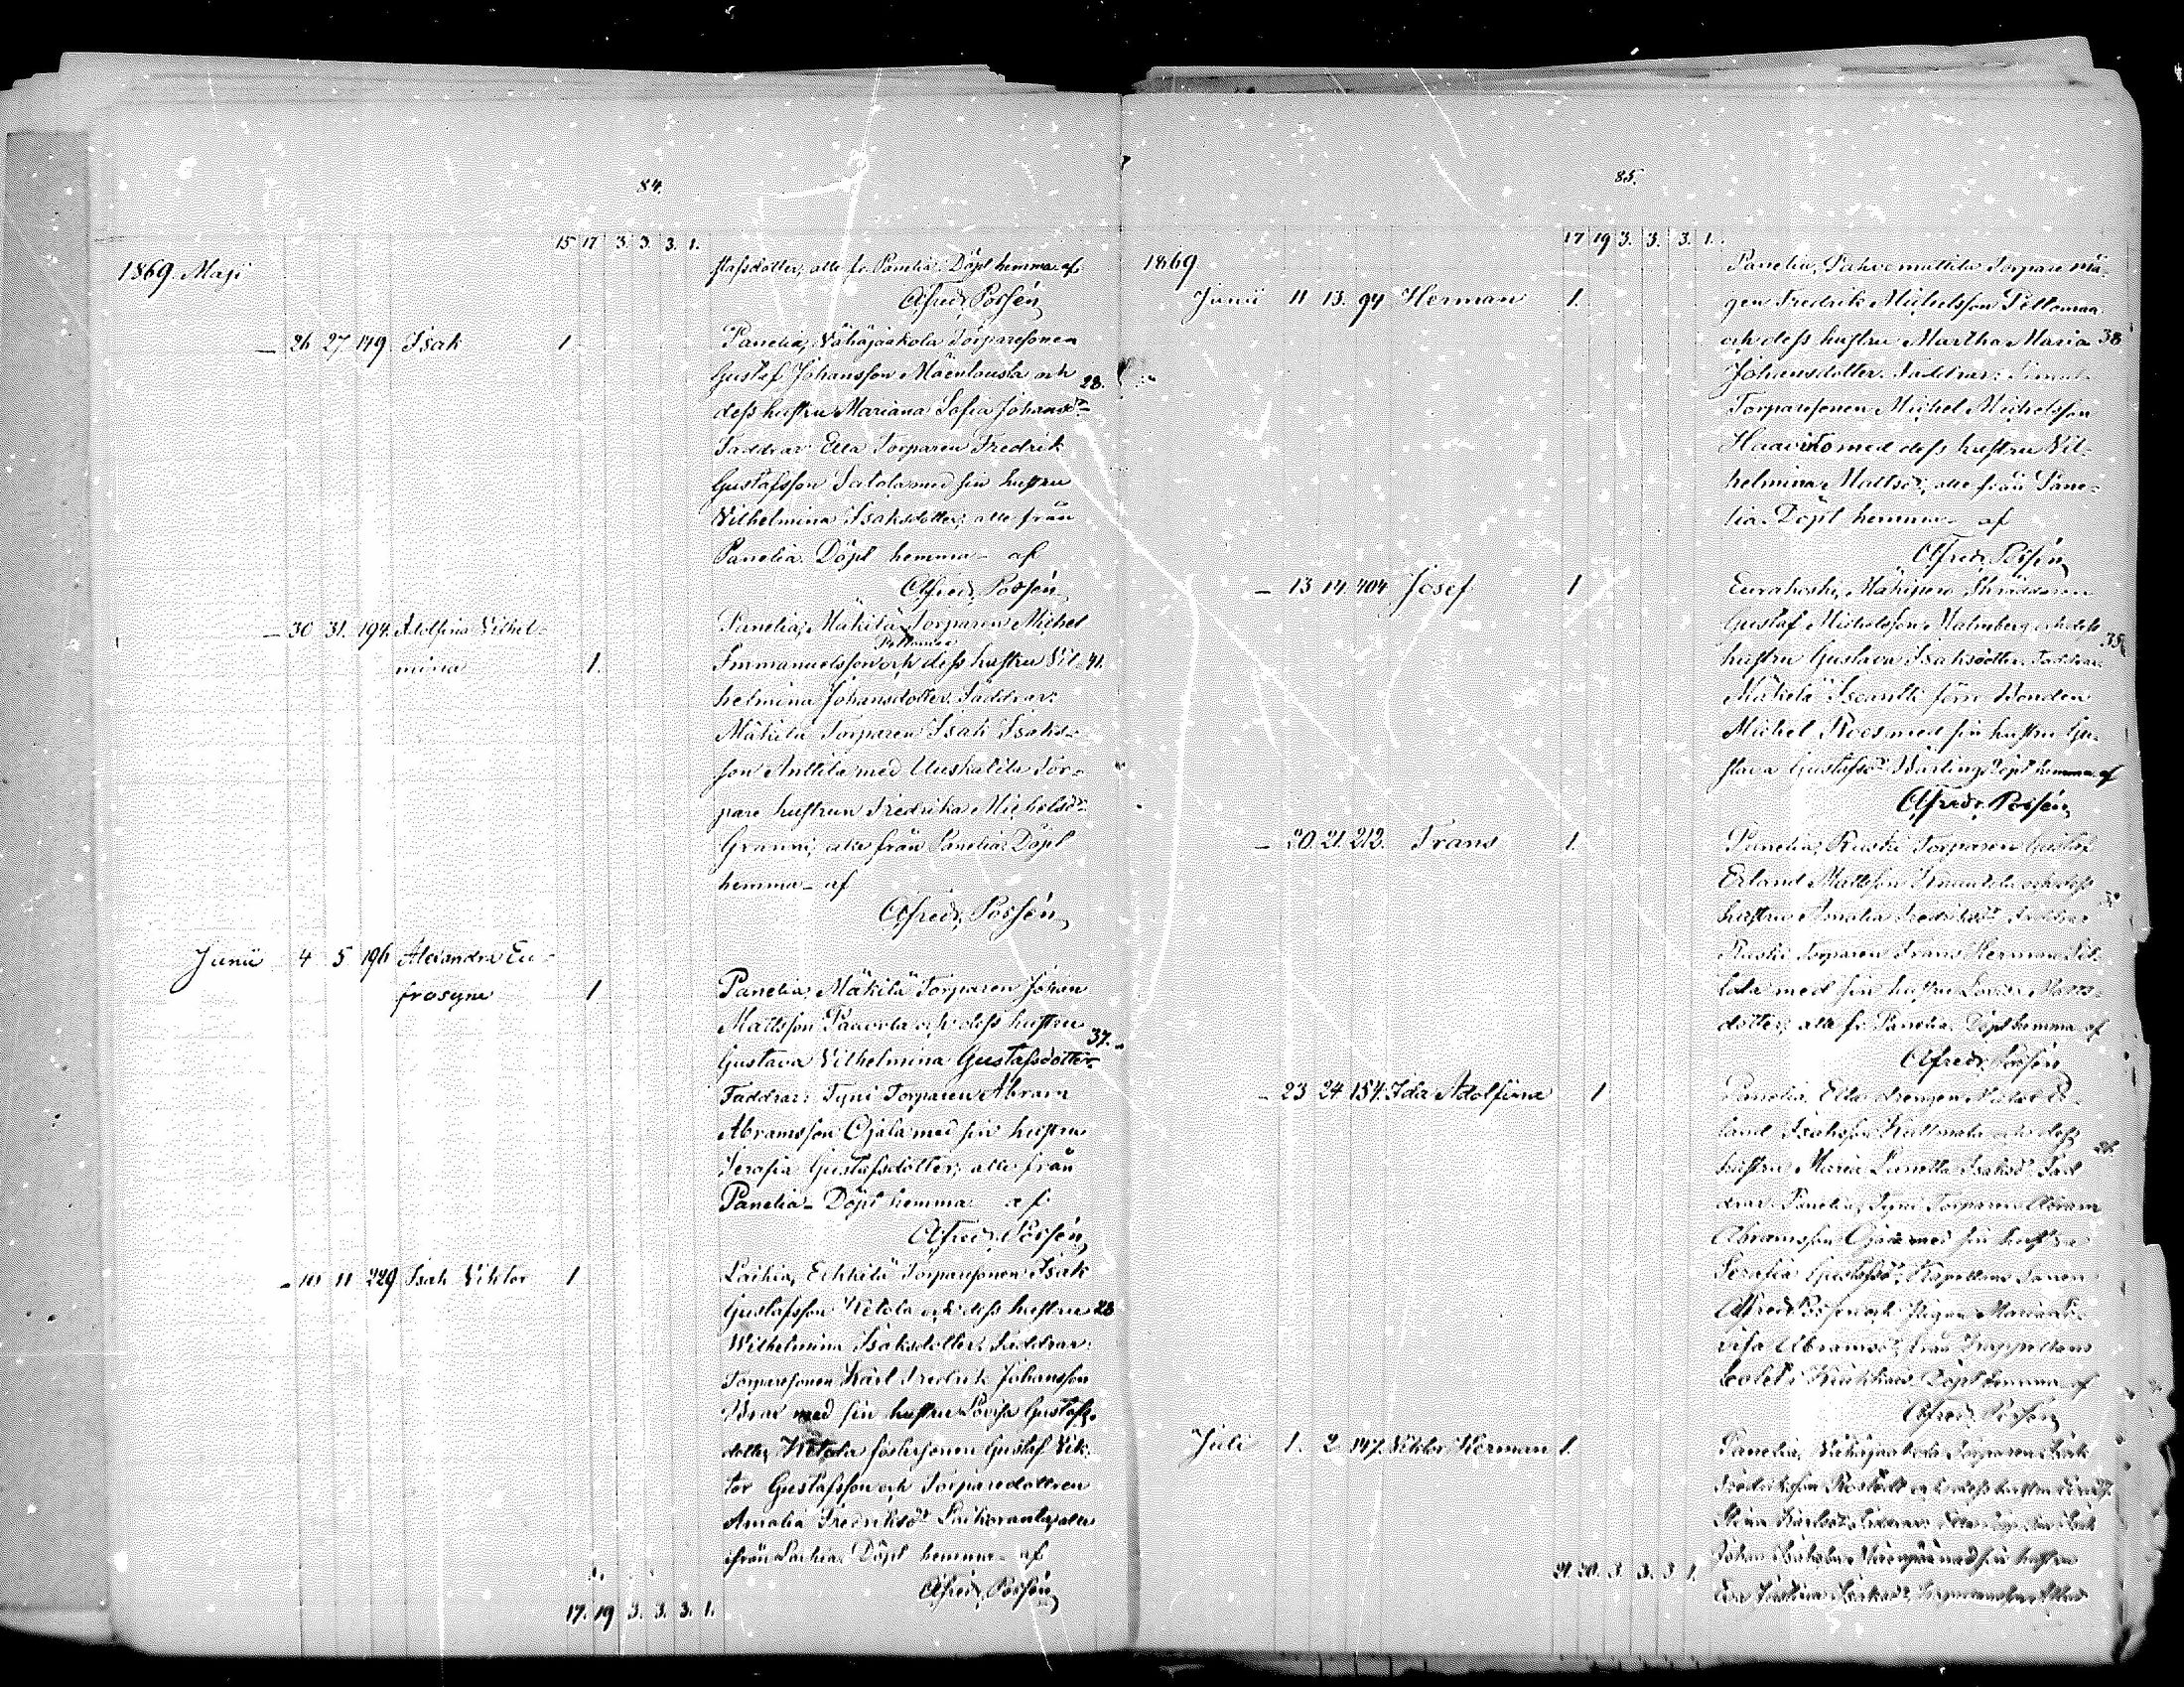 84.
15 17 3. 3. 3. 1.
1869. Maji
stafsdotter, alle fr. Panelia. Döpt hemma af
Alfred Possén
— 26 27 149 Isak 1
Panelia, Vähäjaakola Torparesonen
Gustaf Johansson Mäenlousta och 28.
dess hustru Mariana Sofia Johansdr
Faddrar: Ella Torparen Fredrik
Gustafsson Satola med sin hustru
Vilhelmina Isaksdotter; alle från
Panelia. Döpt hemma — af
Alfred Possén
— 30 31. 194. Adolfina Vilhel-
Panelia, Mäkilä Torparen Michel
mina 1.
Immanuelsson och dess hustru Vil- 41.
helmina Johansdotter. Faddrar:
Mäkilä Torparen Isak Isaks-
son Anttila med Uuskalila Tor-
pare hustrun Fredrika Michelsdr
Granni, alle från Panelia. Döpt
hemma — af
Alfred Possén
Junii 4 5 196 Alexandra Eu-
frosyne 1
Panelia, Mäkilä Torparen Johan
Mattsson Paavola och dess hustru 37.
Gustava Vilhelmina Gustafsdotter
Faddrar: Tyni Torparen Abram
Abramsson Ojala med sin hustru
Serafia Gustafsdotter; alle från
Panelia — Döpt hemma af
Alfred Possén
— 10 11 229 Isak Viktor 1
Laihia, Erkkilä Torparesonen Isak
Gustafsson Ketola och dess hustru 28
Wilhelmina Isaksdotter. Faddrar:
Torparesonen Karl Fredrik Johansson
med sin hustru Lovisa Gustafs-
dotter, Ketola fostersonen Gustaf Vik-
tor Gustafsson och Torparedottren
Amalia Fredriksdr alle
ifrån Laihia. Döpt hemma — af
Alfred Possén
17. 19 3. 3. 3. 1.
85.
17 19 3. 3. 3. 1.
1869
Panelia, Torpare må-
Junii 11 13. 94 Herman 1.
gen Fredrik Michelsson Peltomaa
och dess hustru Martha Maria 38
Johansdotter. Faddrar:
Torparesonen Michel Michelsson
Haavisto med dess hustru Vil-
helmina Mattsdr, alle från Pane-
lia. Döpt hemma — af
Alfred Possén
— 13 14 404 Josef 1
Eurakoski, Mähipero Skräddaren
Gustaf Michelsson Malmberg och dess 35
hustru Gustava Isaksdotter. Faddrar
Mäkelä förr Bonden
Michel Roos med sin hustru Gu-
stava Gustafsdr Döpt hemma af
Alfred Possén
— 20. 21. 212. Frans 1.
Panelia, Ruski Torparen Gustaf
Erland Mattsson och dess
hustru Amalia Fredriksdr Faddrar
Ruski Torparen Frans Herman
med sin hustru Lovisa
dotter; alle fr. Panelia. Döpt hemma af
Alfred Possén
— 23 24 154. Ida Adolfina 1
Panelia, Ella drengen Michel Er-
land Isaksson Kultmala och dess 26.
hustru Maria Isaksdr Fad-
drar: Panelia, Tyni Torparen Abram
Abramsson Ojala med sin hustru
Serafia Gustafsdr, Kapellans sonen
Alfred Possén och Pigan Maria Lo-
visa Abramsdr, från Kappellans
bolet i Kiukkais. Döpt hemma af
Alfred Possén
Juli 1. 2 147. Viktor Herman 1.
Panelia, Vähäjaakola Torparen Isak
Fredriksson och dess hustru 37.
Stina Karlsdr. Faddrar: Ella
Johan med sin hustru
Eva Isaksdr,
21. 20. 3. 3. 3 1.